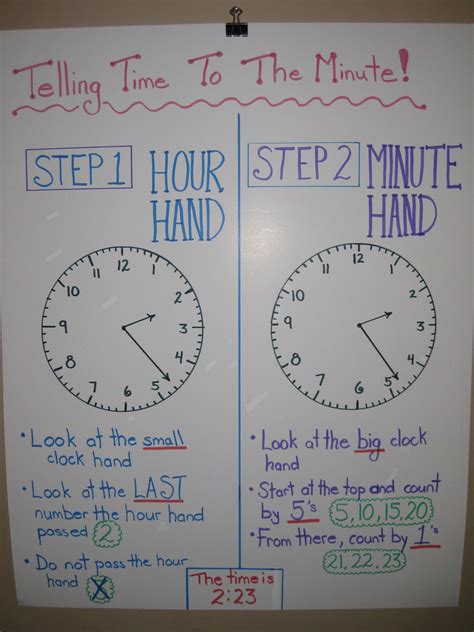 Telling Time To The Minute!
STEP 1 HOUR HAND
12
2
3
4
5
6
7
8
9
10
11
• Look at the small
clock hand
• Look at the LAST
number the hour hand
passed 2
• Do not pass the hour
hand X
STEP 2 MINUTE HAND
12
2
3
4
5
6
7
8
9
10
11
• Look at the big clock
hand
• Start at the top and count
by 5's 5,10,15,20
• From there, count by 1's
21, 22, 23
The time is
2:23